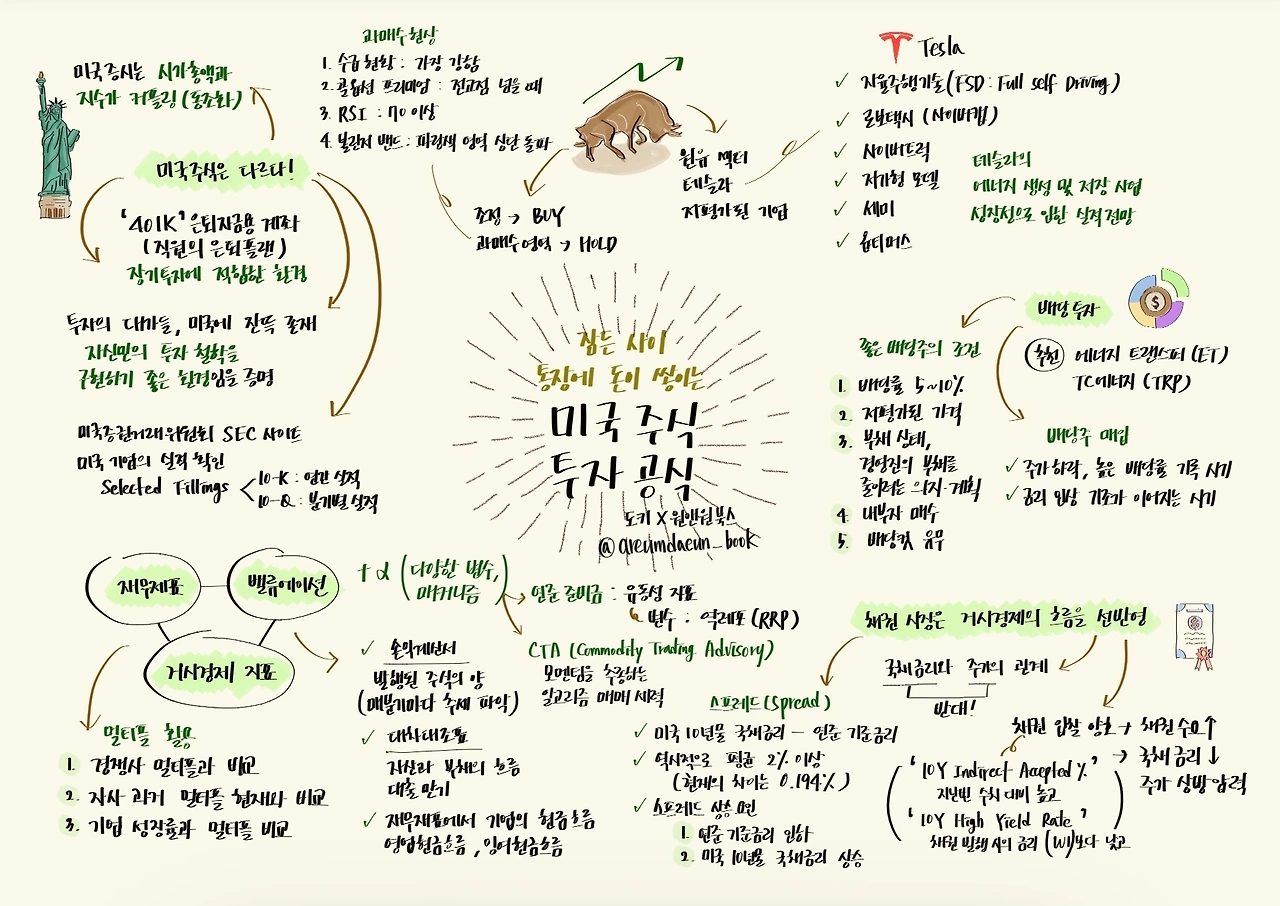 미국증시는 시가총액과
지수가 커플링(동조화)
미국주식은 다르다!
'401K' 은퇴자금용 계좌
(직원의 은퇴플랜)
장기투자에 적합한 환경
투자의 대가들, 미국에 잔뜩 존재
자신만의 투자 철학을
구현하기 좋은 환경임을 증명
미국증권거래위원회 SEC 사이트
미국 기업의 실적 확인
Selected Fillings
10-K : 연간 실적
10-Q : 분기별 실적
과매수현상
1. 수급현황 : 가장 강함
2. 콜옵션 프리미엄 : 전고점 넘을 때
3. RSI : 70 이상
4. 볼린저 밴드 : 파란색 영역 상단 돌파
조정 → BUY
과매수영역 → HOLD
원유 섹터
테슬라
저평가된 기업
Tesla
✓ 자율주행기술(FSD : Full Self Driving)
✓ 로보택시 (사이버캡)
✓ 사이버트럭
✓ 저가형 모델
✓ 세미
✓ 옵티머스
테슬라의
에너지 생성 및 저장 사업
성장성으로 인한 실적전망
잠든 사이
통장에 돈이 쌓이는
미국 주식
투자 공식
도키 X 원앤원북스
@areumdaeun_book
배당투자
추천 에너지 트랜스퍼(ET)
TC에너지(TRP)
좋은 배당주의 조건
1. 배당률 5~10%
2. 저평가된 가격
3. 부채 상태,
경영진의 부채를
줄이려는 의지·계획
4. 내부자 매수
5. 배당컷 유무
배당주 매입
✓ 주가하락, 높은 배당률 기록 시기
✓ 금리 인상 기조가 이어지는 시기
재무제표
밸류에이션
거시경제 지표
+α (다양한 변수,
매커니즘)
연준 준비금 : 유동성 지표
변수 : 역레포(RRP)
CTA (Commodity Trading Advisory)
모멘텀을 추종하는
알고리즘 매매 세력
멀티플 활용
1. 경쟁사 멀티플과 비교
2. 자사 과거 멀티플 현재와 비교
3. 기업 성장률과 멀티플 비교
✓ 손익계산서
발행된 주식의 양
(매분기마다 추세 파악)
✓ 대차대조표
자산과 부채의 흐름
대출 만기
✓ 재무제표에서 기업의 현금흐름
영업현금흐름, 잉여현금흐름
채권 시장은 거시경제의 흐름을 선반영
국채금리와 주가의 관계
반대!
스프레드(Spread)
✓ 미국 10년물 국채금리 - 연준 기준금리
✓ 역사적으로 평균 2% 이상
(현재의 차이는 0.194%)
✓ 스프레드 상승 요인
1. 연준 기준금리 인하
2. 미국 10년물 국채금리 상승
채권 입찰 양호 → 채권 수요↑
→ 국채 금리↓
주가 상방압력
'10Y Indirect Accepted %'
지난번 수치 대비 높고
'10Y High Yield Rate'
채권 발행 시의 금리 (WI)보다 낮고